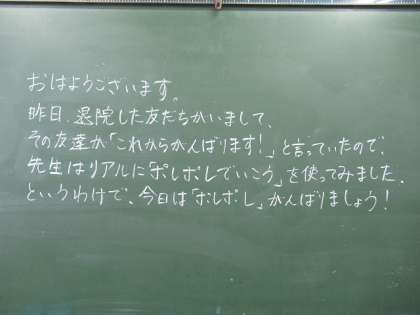 おはようございます。
昨日、退院した友だちがいまして、
その友達が「これからがんばります!」と言っていたので、
先生はリアルに「ポレポレでいこう」を使ってみました。
というわけで、今日は「ポレポレ」がんばりましょう!